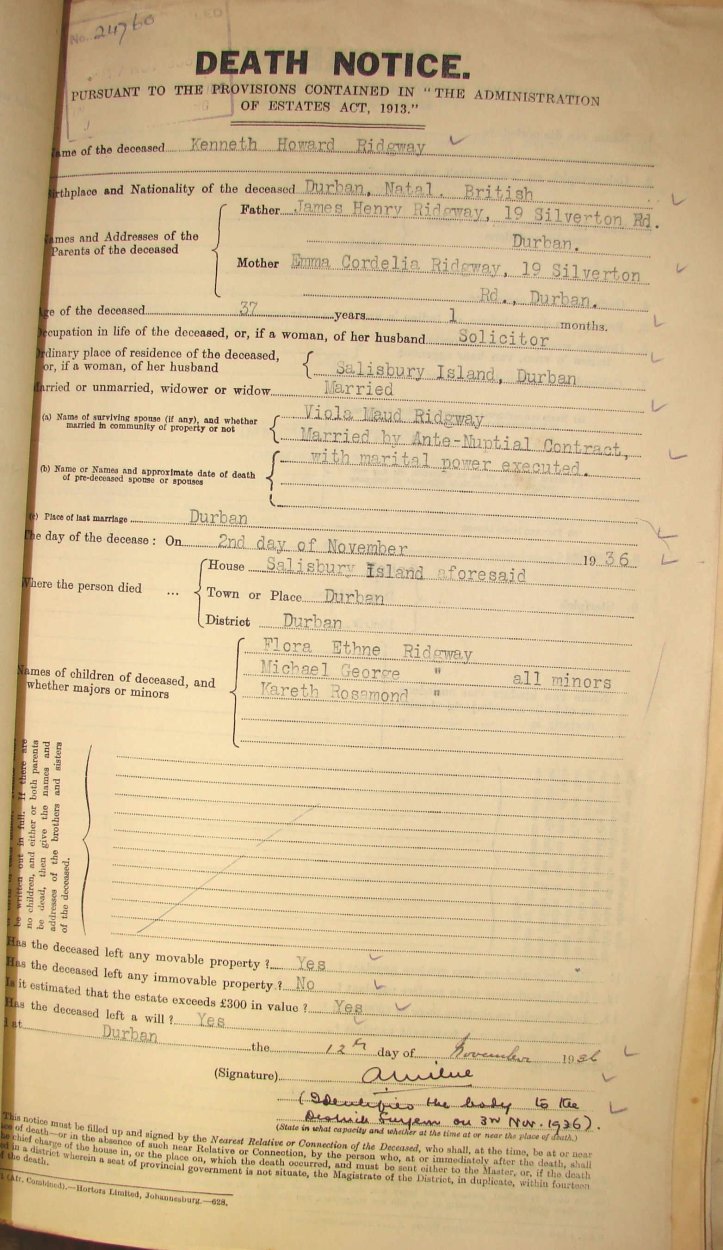 No. 24760
DEATH NOTICE.
PURSUANT TO THE PROVISIONS CONTAINED IN "THE ADMINISTRATION
OF ESTATES ACT, 1913."
ame of the deceased Kenneth Howard Ridgway
irthplace and Nationality of the deceased Durban, Natal. British
ames and Addresses of the
Parents of the deceased
Father James Henry Ridgway, 19 Silverton Rd.
Durban.
Mother Emma Cordelia Ridgway, 19 Silverton
Rd., Durban.
ge of the deceased 37 years 1 months.
ccupation in life of the deceased, or, if a woman, of her husband Solicitor
rdinary place of residence of the deceased,
or, if a woman, of her husband
Salisbury Island, Durban
arried or unmarried, widower or widow Married
(a) Name of surviving spouse (if any), and whether
married in community of property or not
Viola Maud Ridgway
Married by Ante-Nuptial Contract,
with marital power executed.
(b) Name or Names and approximate date of death
of pre-deceased spouse or spouses
(c) Place of last marriage Durban
he day of the decease: On 2nd day of November 1936
Where the person died ...
House Salisbury Island aforesaid
Town or Place Durban
District Durban
Names of children of deceased, and
whether majors or minors
Flora Ethne Ridgway
Michael George " all minors
Kareth Rosamond "
be written out in full. If there are
no children, and either or both parents
be dead, then give the names and
addresses of the brothers and sisters
of the deceased.
Has the deceased left any movable property? Yes
Has the deceased left any immovable property? No
Is it estimated that the estate exceeds £300 in value? Yes
Has the deceased left a will? Yes
at Durban the 12th day of November 1936
(Signature)
(Identifies the body to the
District Surgeon on 3rd Nov. 1936).
(State in what capacity and whether at the time at or near the place of death.)
This notice must be filled up and signed by the Nearest Relative or Connection of the Deceased, who shall, at the time, be at or near
ce of death—or in the absence of such near Relative or Connection, by the person who, at or immediately after the death, shall
e chief charge of the house in, or the place on, which the death occurred, and must be sent either to the Master, or, if the death
d in a district wherein a seat of provincial government is not situate, the Magistrate of the District, in duplicate, within fourteen
f the death.
(Afr. Combined).—Hortors Limited, Johannesburg.—628.